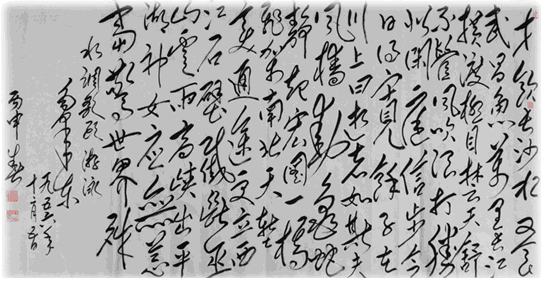 才饮长沙水又食
武昌鱼萬里长江
横渡极目楚天舒
不管风吹浪打胜
似闲庭信步今
日得宽馀子在
川上曰逝者如斯夫
风樯动龟蛇
静起宏图一桥
飞架南北天堑
变通途更立西
江石壁截断巫
山云雨高峡出平
湖神女应无恙
当惊世界殊
水调歌头游泳
一九五六年
丙申春